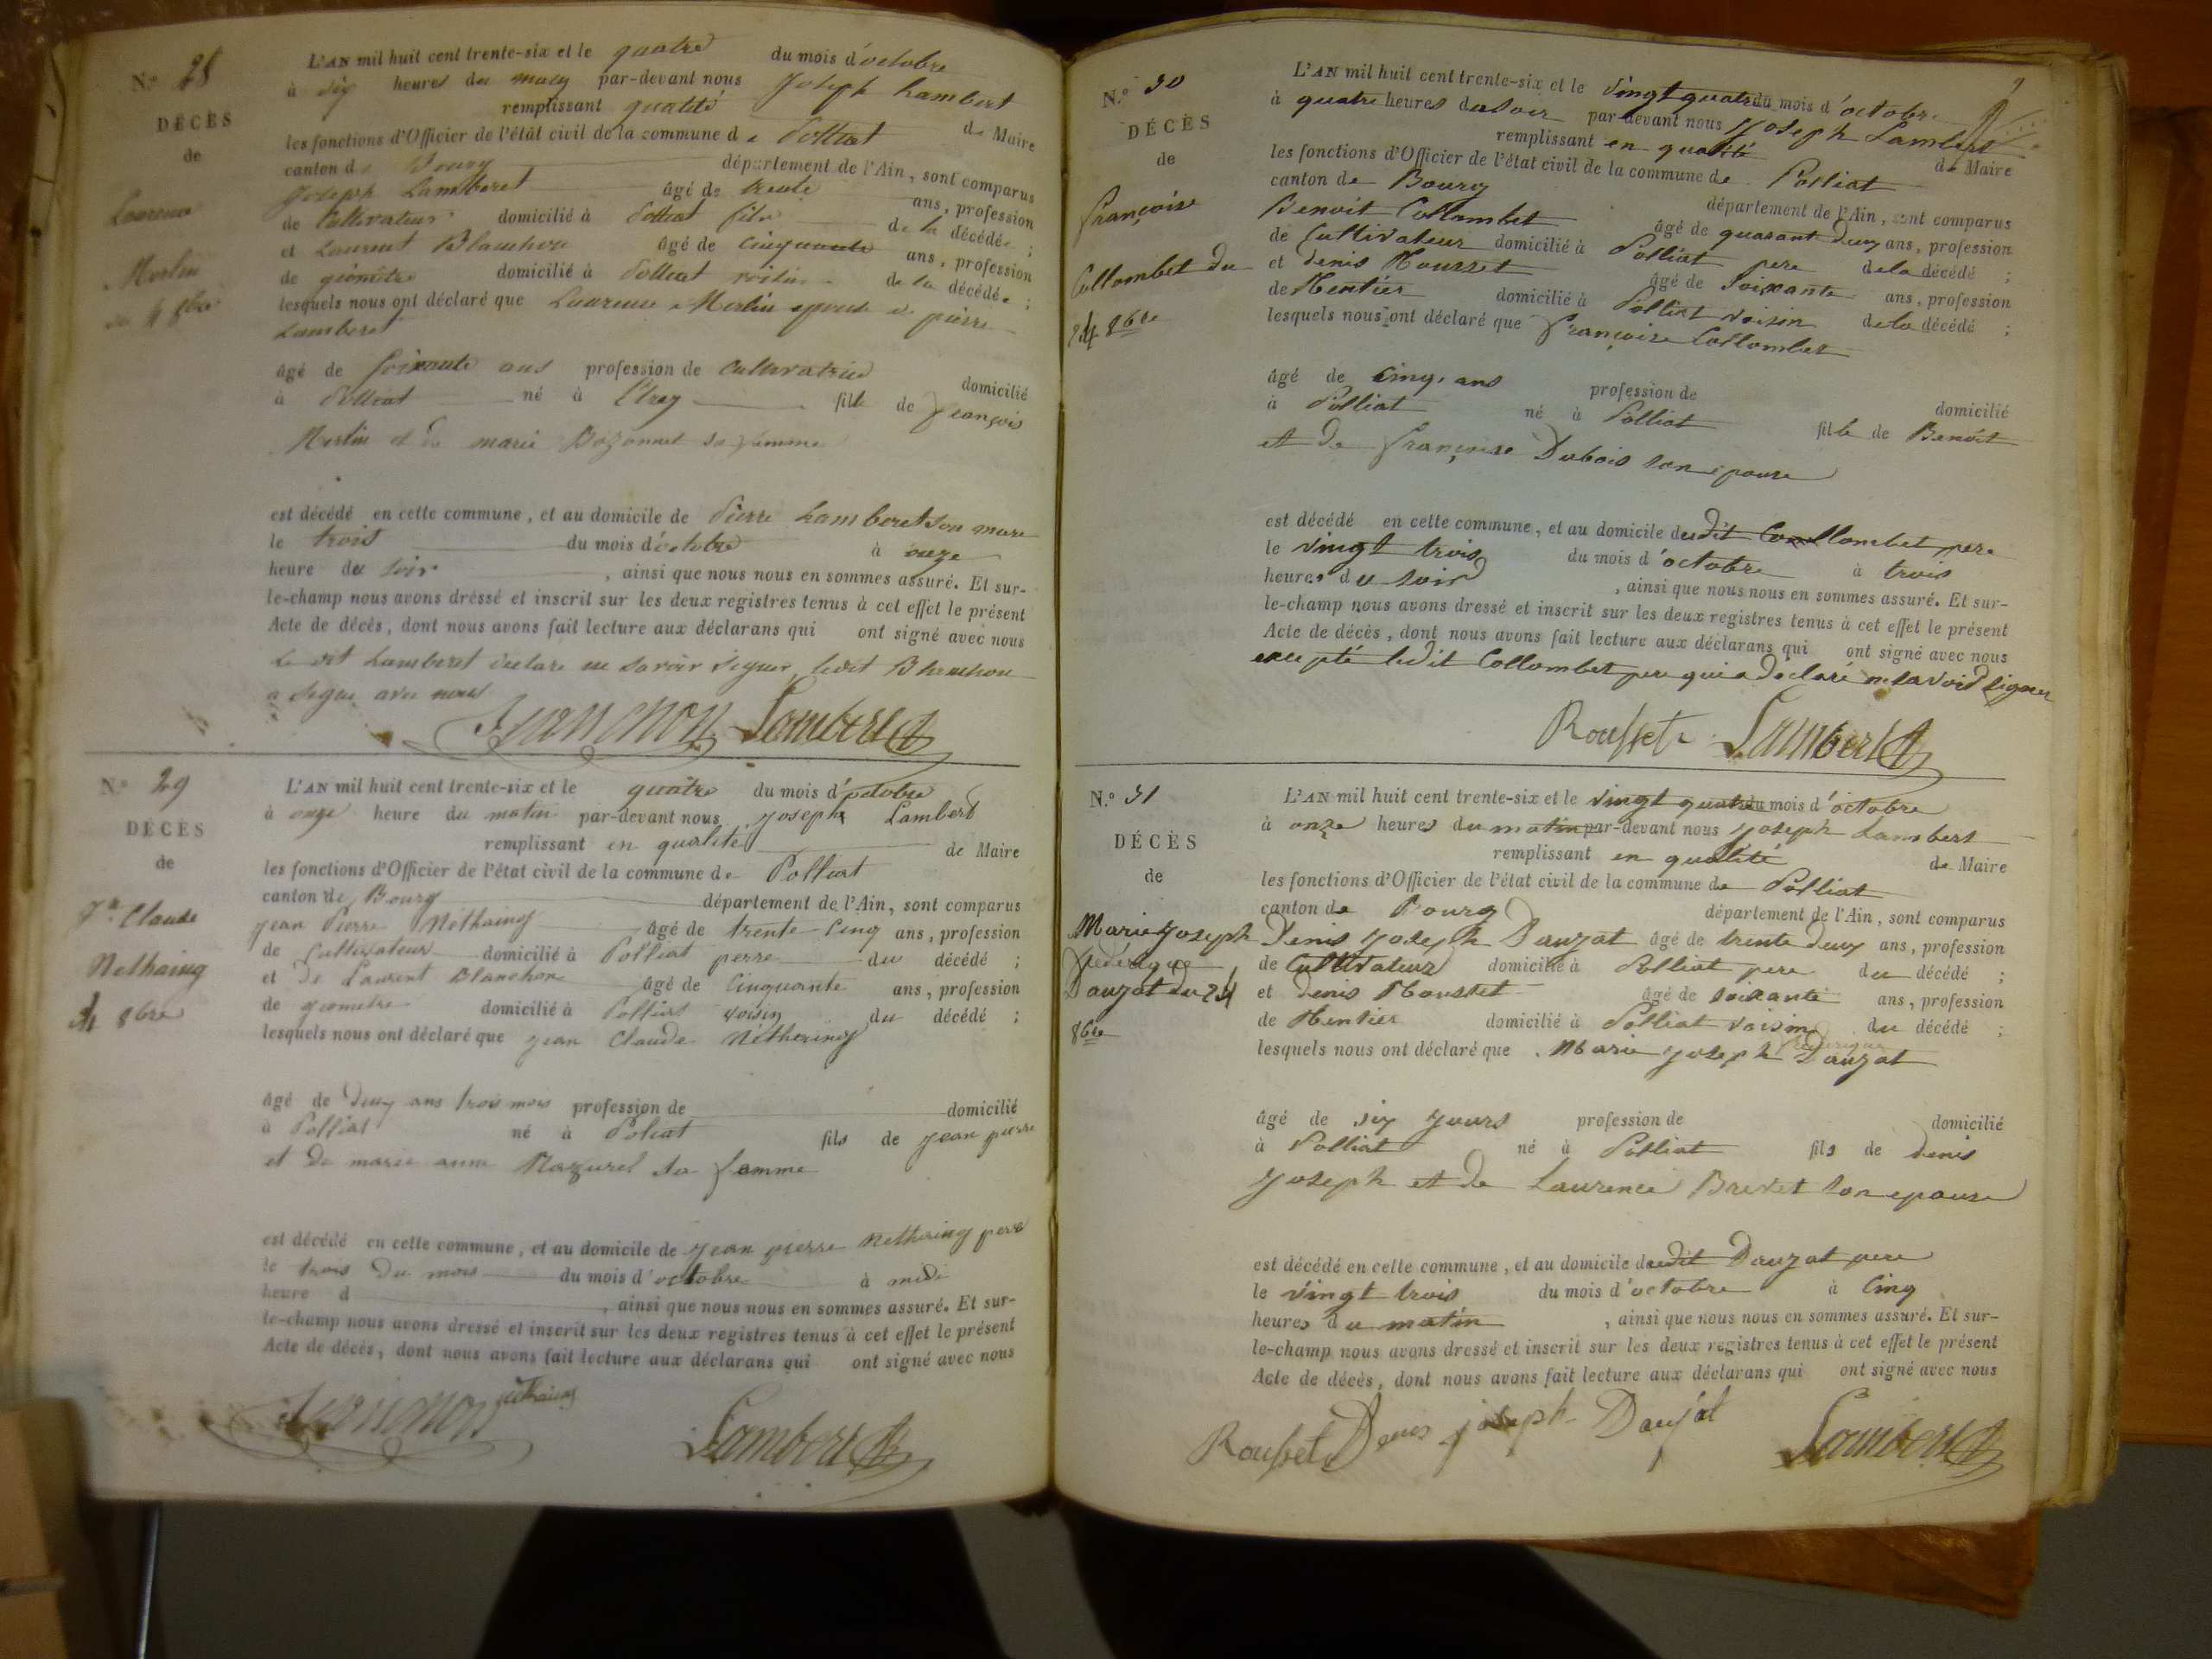 N.º 28
DÉCÈS
de
Laurence
Merlin
du 4 8bre
L'AN mil huit cent trente-six et le quatre du mois d'octobre
à dix heures du matin par-devant nous Joseph Lambert
remplissant qualité de Maire
les fonctions d'Officier de l'état civil de la commune de Polliat
canton de Bourg département de l'Ain, sont comparus
Joseph Lamberet âgé de trente ans, profession
de Cultivateur domicilié à Polliat fils de la décédée ;
et Laurent Blanchon âgé de cinquante ans, profession
de géomètre domicilié à Polliat voisin de la décédée ;
lesquels nous ont déclaré que Laurence Merlin epouse de pierre
Lamberet
âgé de soixante ans profession de Cultivatrice domicilié
à Polliat né à Etrez fille de françois
Merlin et de marie Bozonnet sa femme
est décédé en cette commune, et au domicile de Pierre Lamberet son mari
le trois du mois d'octobre à onze
heure du soir , ainsi que nous nous en sommes assuré. Et sur-
le-champ nous avons dréssé et inscrit sur les deux registres tenus à cet effet le présent
Acte de décès, dont nous avons fait lecture aux déclarans qui ont signé avec nous
Le dit Lamberet declare ne savoir signer, ledit Blanchon
a signé avec nous
Blanchon Lambert
N.º 29
DÉCÈS
de
Jn Claude
Nethaing
4 8bre
L'AN mil huit cent trente-six et le quatre du mois d'octobre
à onze heure du matin par-devant nous Joseph Lambert
remplissant en qualité de Maire
les fonctions d'Officier de l'état civil de la commune de Polliat
canton de Bourg département de l'Ain, sont comparus
jean Pierre Nethaing âgé de trente Cinq ans, profession
de Cultivateur domicilié à Polliat perre du décédé ;
et de Laurent Blanchon âgé de Cinquante ans, profession
de geometre domicilié à Polliat voisin du décédé ;
lesquels nous ont déclaré que jean Claude Nethaing
âgé de deux ans trois mois profession de domicilié
à Polliat né à Poliat fils de jean pierre
et de marie anne Mazurel sa femme
est décédé en cette commune, et au domicile de jean pierre Nethaing pere
le trois du mois du mois d'octobre à midi
heure d , ainsi que nous nous en sommes assuré. Et sur-
le-champ nous avons dressé et inscrit sur les deux registres tenus à cet effet le présent
Acte de décès, dont nous avons fait lecture aux déclarans qui ont signé avec nous
Blanchon Nethaing Lambert
N.º 30
DÉCÈS
de
françoise
Collombet du
24 8bre
L'AN mil huit cent trente-six et le vingt quatre du mois d'octobre
à quatre heures du soir par-devant nous Joseph Lambert
remplissant en qualité de Maire
les fonctions d'Officier de l'état civil de la commune de Polliat
canton de Bourg département de l'Ain, sont comparus
Benoit Collombet âgé de quarant deux ans, profession
de Cultivateur domicilié à Polliat pere de la décédé ;
et denis Rousset âgé de soixante ans, profession
de Rentier domicilié à Polliat voisin de la décédé ;
lesquels nous ont déclaré que françoise Collombet
âgé de cinq ans profession de domicilié
à Polliat né à Polliat fille de Benoit
et de françoise Dubois son epouse
est décédé en cette commune, et au domicile dudit Collombet pere
le vingt trois du mois d'octobre à trois
heures du soir , ainsi que nous nous en sommes assuré. Et sur-
le-champ nous avons dressé et inscrit sur les deux registres tenus à cet effet le présent
Acte de décès, dont nous avons fait lecture aux déclarans qui ont signé avec nous
excepté ledit Collombet pere qui a déclaré ne savoir signer
Rousset Lambert
N.º 31
DÉCÈS
de
Marie Joseph
frédérique
Dauzat du 24
8bre
L'AN mil huit cent trente-six et le vingt quatre du mois d'octobre
à onze heures du matin par-devant nous Joseph Lambert
remplissant en qualité de Maire
les fonctions d'Officier de l'état civil de la commune de Polliat
canton de Bourg département de l'Ain, sont comparus
Denis Joseph Dauzat âgé de trente deux ans, profession
de Cultivateur domicilié à Polliat pere du décédé ;
et denis Rousset âgé de soixante ans, profession
de Rentier domicilié à Polliat voisin du décédé ;
lesquels nous ont déclaré que Marie Joseph frederique Dauzat
âgé de six jours profession de domicilié
à Polliat né à Polliat fils de denis
Joseph et de Laurence Brevet son epouse
est décédé en cette commune, et au domicile dudit Dauzat pere
le vingt trois du mois d'octobre à Cinq
heures du matin , ainsi que nous nous en sommes assuré. Et sur-
le-champ nous avons dressé et inscrit sur les deux registres tenus à cet effet le présent
Acte de décès, dont nous avons fait lecture aux déclarans qui ont signé avec nous
Rousset Denis joseph Dauzat Lambert